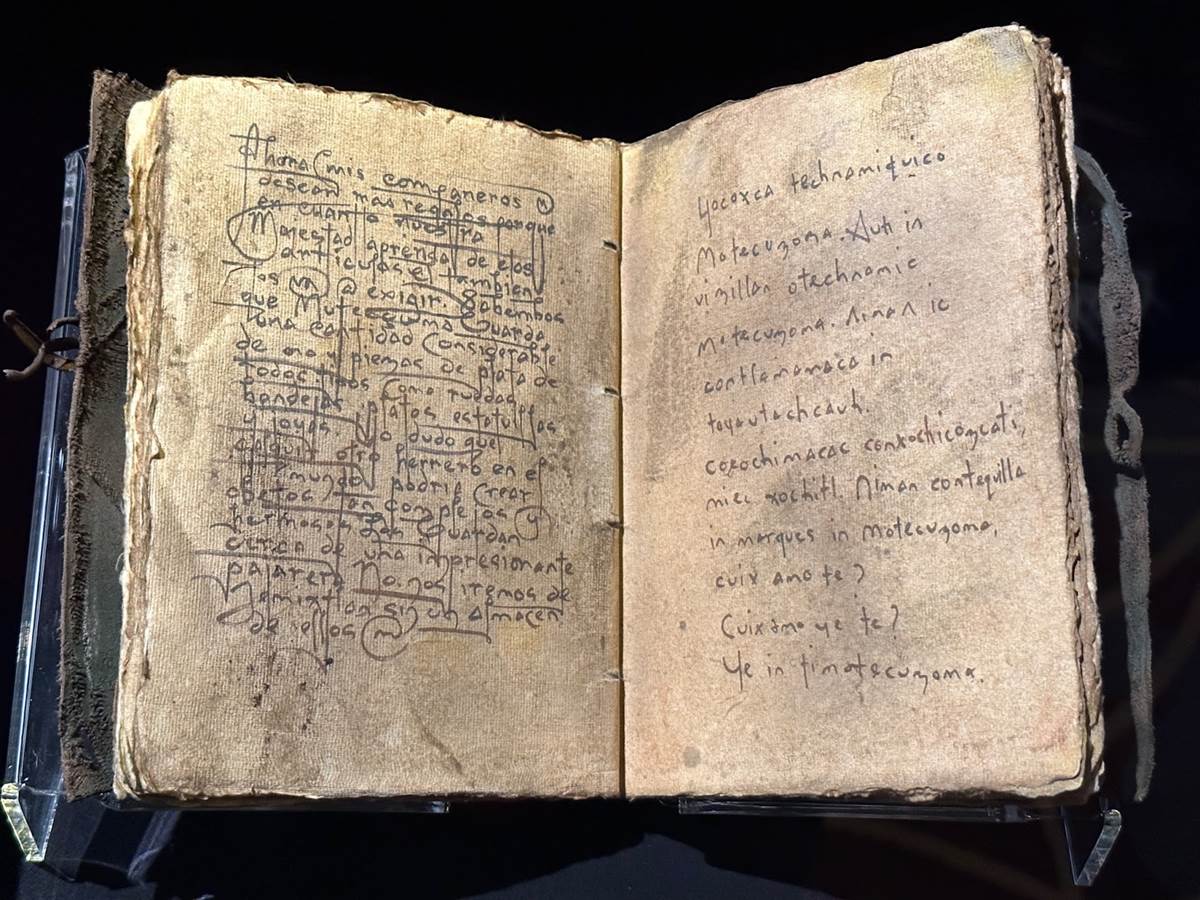 Ahora mis companeros
desean mas regalos porque
en cuanto nuestra
Majestad aprenda de elos
articulos el tambien
los va a exigir. Sabembos
que Mutezguma Guarda,
una cantidad Considerable
de oro y piezas de plata de
todos tipos Como ruedas,
bandejas Platos estatuillas
y joyas. No dudo que
seguir otro herrero en el
mundo podria Crear
objetos tan complejos y
hermosos. Son Guardan
cerca de una impresionante
pajarera No.nos iremos de
sin un almacen
de ellos
Yocoxca technamiquico
Motecuzoma. Auh in
vizillan otechnamic
Motecuzoma. Niman ic
contlamamaca in
toyautachcauh.
coxochimacac conxochicozcati,
miec xochitl. Niman contequilia
in marques in Motecuzoma,
cuix amo te?
Cuix amo ye te?
Ye in timotecuzoma.